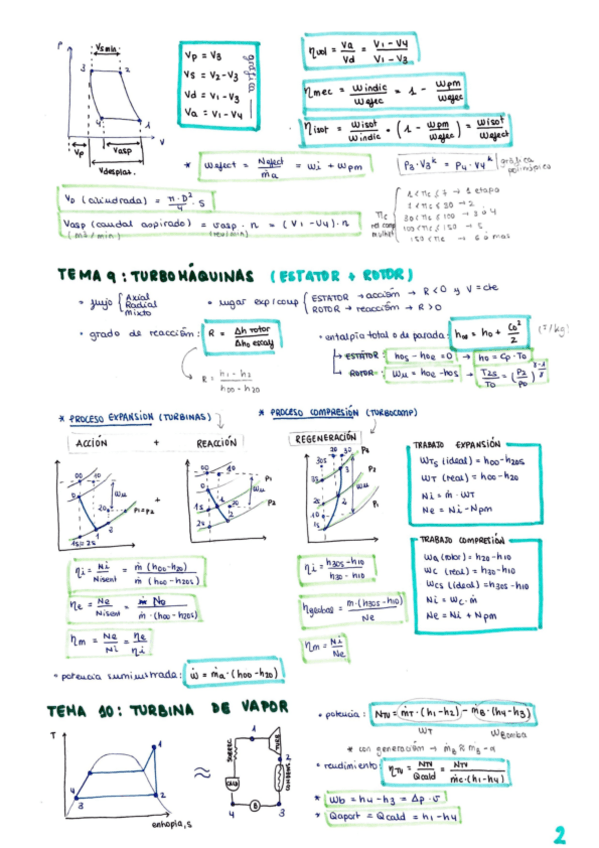 P
Vs min.
3
2
4
1
V
Vp
Vasp
Vdesplaz.
Vp = V3
Vs = V2 - V3
Vd = V1 - V3
Va = V1 - V4
gráfica
ηvol = Va/Vd = (V1 - V4)/(V1 - V3)
ηmec = Windic/Wefec = 1 - Wpm/Wefec
ηisot = Wisot/Windic · (1 - Wpm/Wefec) = Wisot/Wefect
* Wefect = Nefect/ṁa = Wi + Wpm
P3·V3^k = P4·V4^k
gráfica
politrópica
Vp (cilindrada) = π·D²/4 · S
Vasp (caudal aspirado) = Vasp · n = (V1 - V4)·n
(m3/min)
(rev/min)
1 < πc ≤ 7 → 1 etapa
7 < πc ≤ 30 → 2
30 < πc ≤ 100 → 3 ó 4
100 < πc ≤ 150 → 5
150 < πc → 6 ó más
πc
rel comp
TEMA 9: TURBOMÁQUINAS (ESTATOR + ROTOR)
• flujo { Axial
Radial
Mixto
• lugar exp/comp { ESTATOR → acción → R<0 y V=cte
ROTOR → reacción → R>0
• grado de reacción: R = Δh rotor / Δho escaly
→ R = (h1 - h2)/(h00 - h20)
• entalpía total o de parada: h00 = h0 + C0²/2 (J/kg)
↳ ESTATOR: h0s - h0e = 0 → h0 = Cp·T0
↳ ROTOR: Wu = h0e - h0s → T2s/T0 = (P2/P0)^(γ-1/γ)
* PROCESO EXPANSION (TURBINAS)
* PROCESO COMPRESIÓN (TURBOCOMP)
ACCIÓN + REACCIÓN
REGENERACIÓN
00
10
0
20
Wu
2
1
P1
P1=P2
1s=2s
+
00
10
0
1s
1
20
2s
2
Wu
P1
P2
30s
20
30
P3
P2
3s
3
2s
2
10
1s
Wu
TRABAJO EXPANSIÓN
WTs (ideal) = h00 - h20s
WT (real) = h00 - h20
Ni = ṁ · WT
Ne = Ni - Npm
TRABAJO COMPRESIÓN
Wa (rotor) = h20 - h10
Wc (real) = h30 - h10
Wcs (ideal) = h30s - h10
Ni = Wc · ṁ
Ne = Ni + Npm
ηi = Ni/Nisent = ṁ (h00 - h20)/ṁ (h00 - h20s)
ηe = Ne/Nisent = No/ṁ·(h00 - h20s)
ηm = Ne/Ni = ηe/ηi
ηi = (h30s - h10)/(h30 - h10)
= ṁ·(h30s - h10)/Ne
ηm = Ni/Ne
• potencia suministrada: ẇ = ṁa·(h00 - h20)
TEMA 10: TURBINA DE VAPOR
T
1
4
3
2
entropía, s
≈
SOBREC.
1
TURB
2
CONDENS.
CALD
4
B
3
• potencia: NTV = ṁT·(h1 - h2) - ṁB·(h4 - h3)
WT
WBomba
* con generación → ṁB ≠ ṁg - a
• rendimiento: ηTV = NTV/Qcald = NTV/ṁc·(h1 - h4)
* Wb = h4 - h3 = Δp · v
* Qaport = Qcald = h1 - h4
2